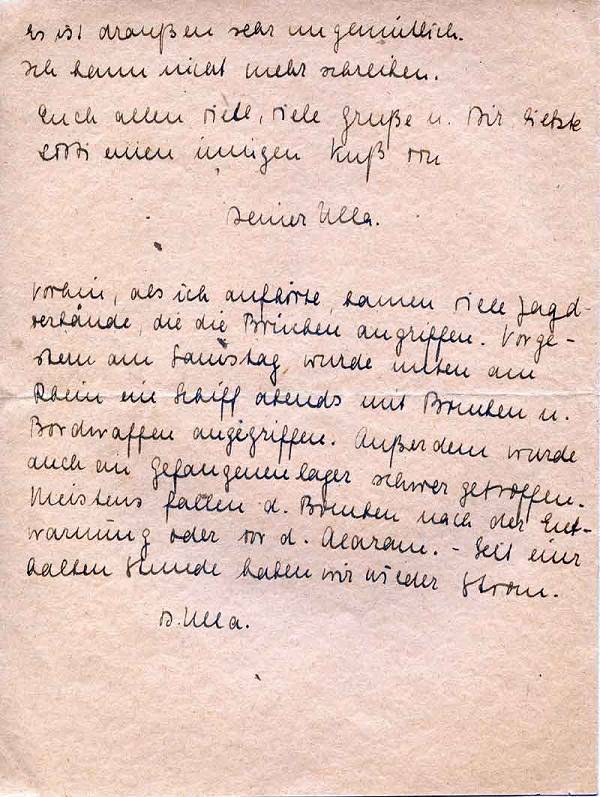 Es ist draußen sehr ungemütlich.
Ich kann nicht mehr schreiben.
Euch allen viele, viele Grüße u. Dir liebste
einen innigen Kuß von
Deiner Ulla.
Vorhin, als ich aufhörte, kamen viele Jagd-
verbände, die die Brücken angriffen. Vorge-
stern am Samstag wurde unten am
Rhein ein Schiff abends mit Bomben u.
Bordwaffen angegriffen. Außerdem wurde
auch ein Gefangenenlager schwer getroffen.
Meistens fallen d. Bomben nach der Ent-
warnung oder vor d. Alarm. - Seit einer
halben Stunde haben wir wieder Strom.
D. Ulla.